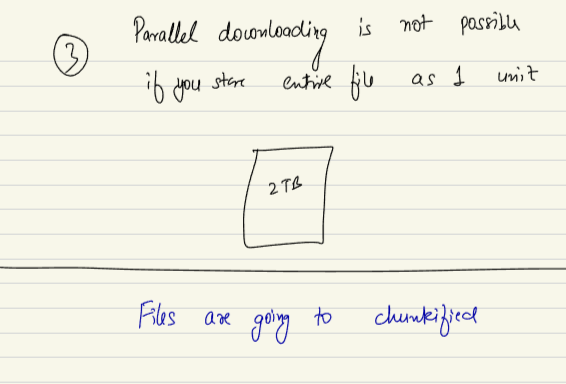 3 Parallel downloading is not possible
if you store entire file as 1 unit
2 TB
Files are going to chunkified